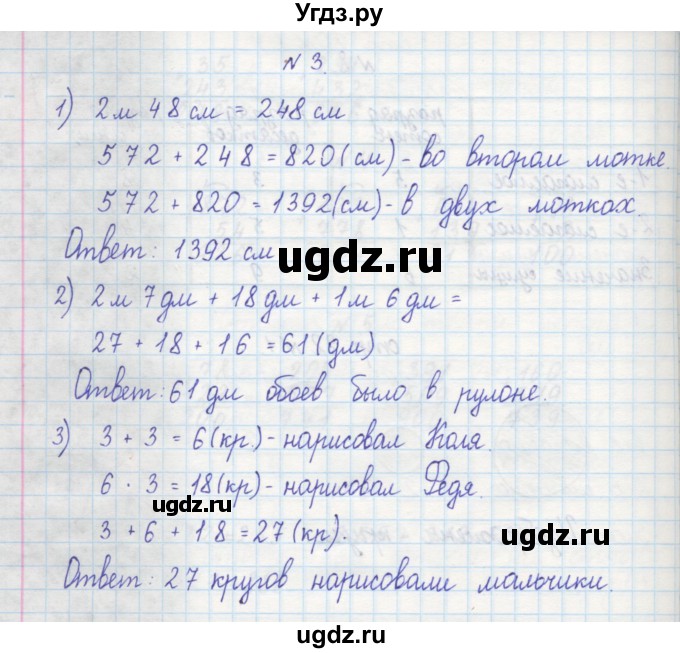 Угдз.ру
N 3.
1) 2м 48 см = 248 см
572 + 248 = 820 (см) - во втором мотке.
572 + 820 = 1392 (см) - в двух мотках.
Ответ: 1392 см
ugdz.ru
2) 2м 7дм + 18дм + 1м 6дм =
27 + 18 + 16 = 61 (дм)
Ответ: 61 дм обоев было в рулоне.
ugdz.ru
3) 3 + 3 = 6 (кр.) - нарисовал Коля.
6 · 3 = 18 (кр) - нарисовал Федя.
ugdz.ru
ugdz.ru
3 + 6 + 18 = 27 (кр).
Ответ: 27 кругов нарисовали мальчики.
ugdz.ru